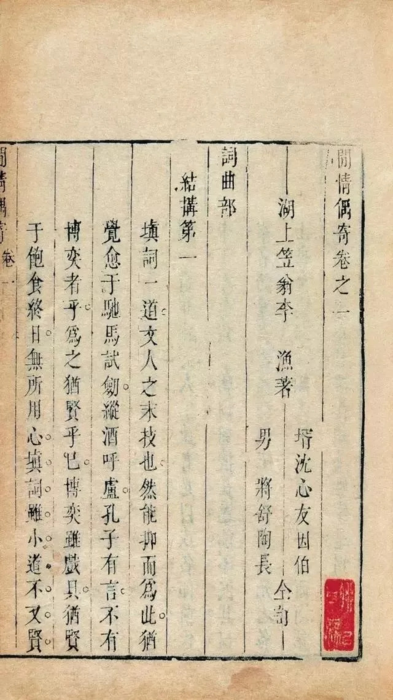 閒情偶寄卷之一
湖上笠翁李 漁著
壻沈心友因伯
男 將舒陶長 仝訂
詞曲部
結搆第一
填詞一道文人之末技也然能抑而爲此猶
覺愈于馳馬試劒縱酒呼盧孔子有言不有
博奕者乎爲之猶賢乎已博奕雖戲具猶賢
于飽食終日無所用心填詞雖小道不又賢
閒情偶寄 卷一